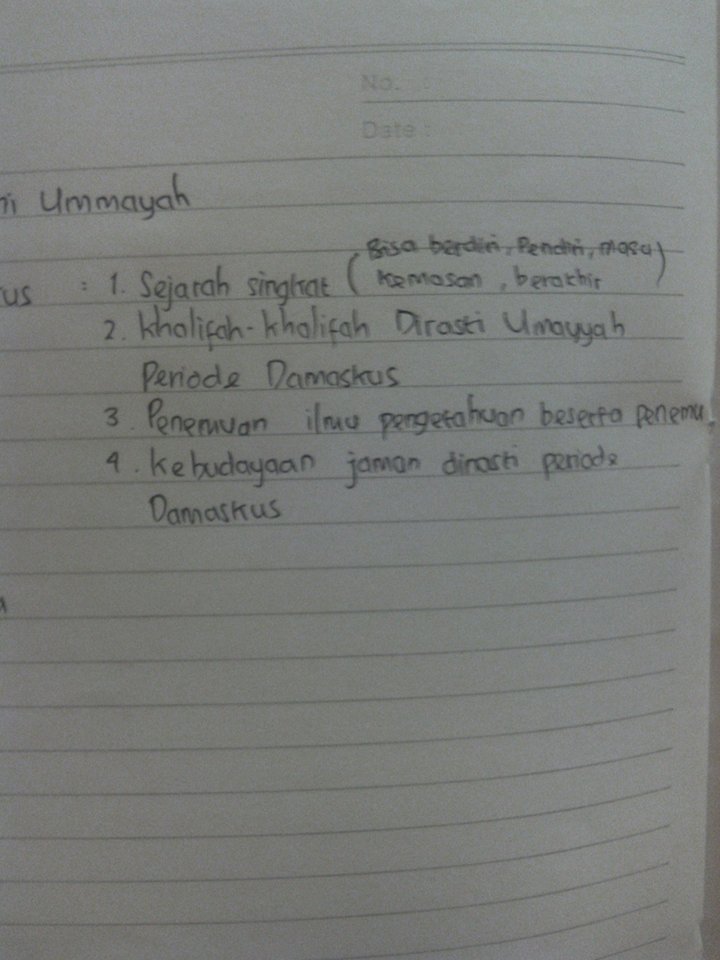 No. :
Date :
ni Ummayah
(Bisa berdiri, Pendiri, masa)
us : 1. Sejarah singkat ( kemasan, berakhir
2. Khalifah-khalifah Dirasti Umayyah
Periode Damaskus
3. Penemuan ilmu pengetahuan beserta penemu.
4. Kebudayaan jaman dirasti periode
Damaskus